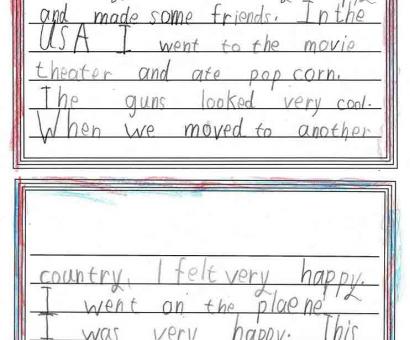 and made some friends. In the
USA I went to the movie
theater and ate pop corn.
The guns looked very cool.
When we moved to another
country, I felt very happy.
I went on the plaene
I was very happy. This